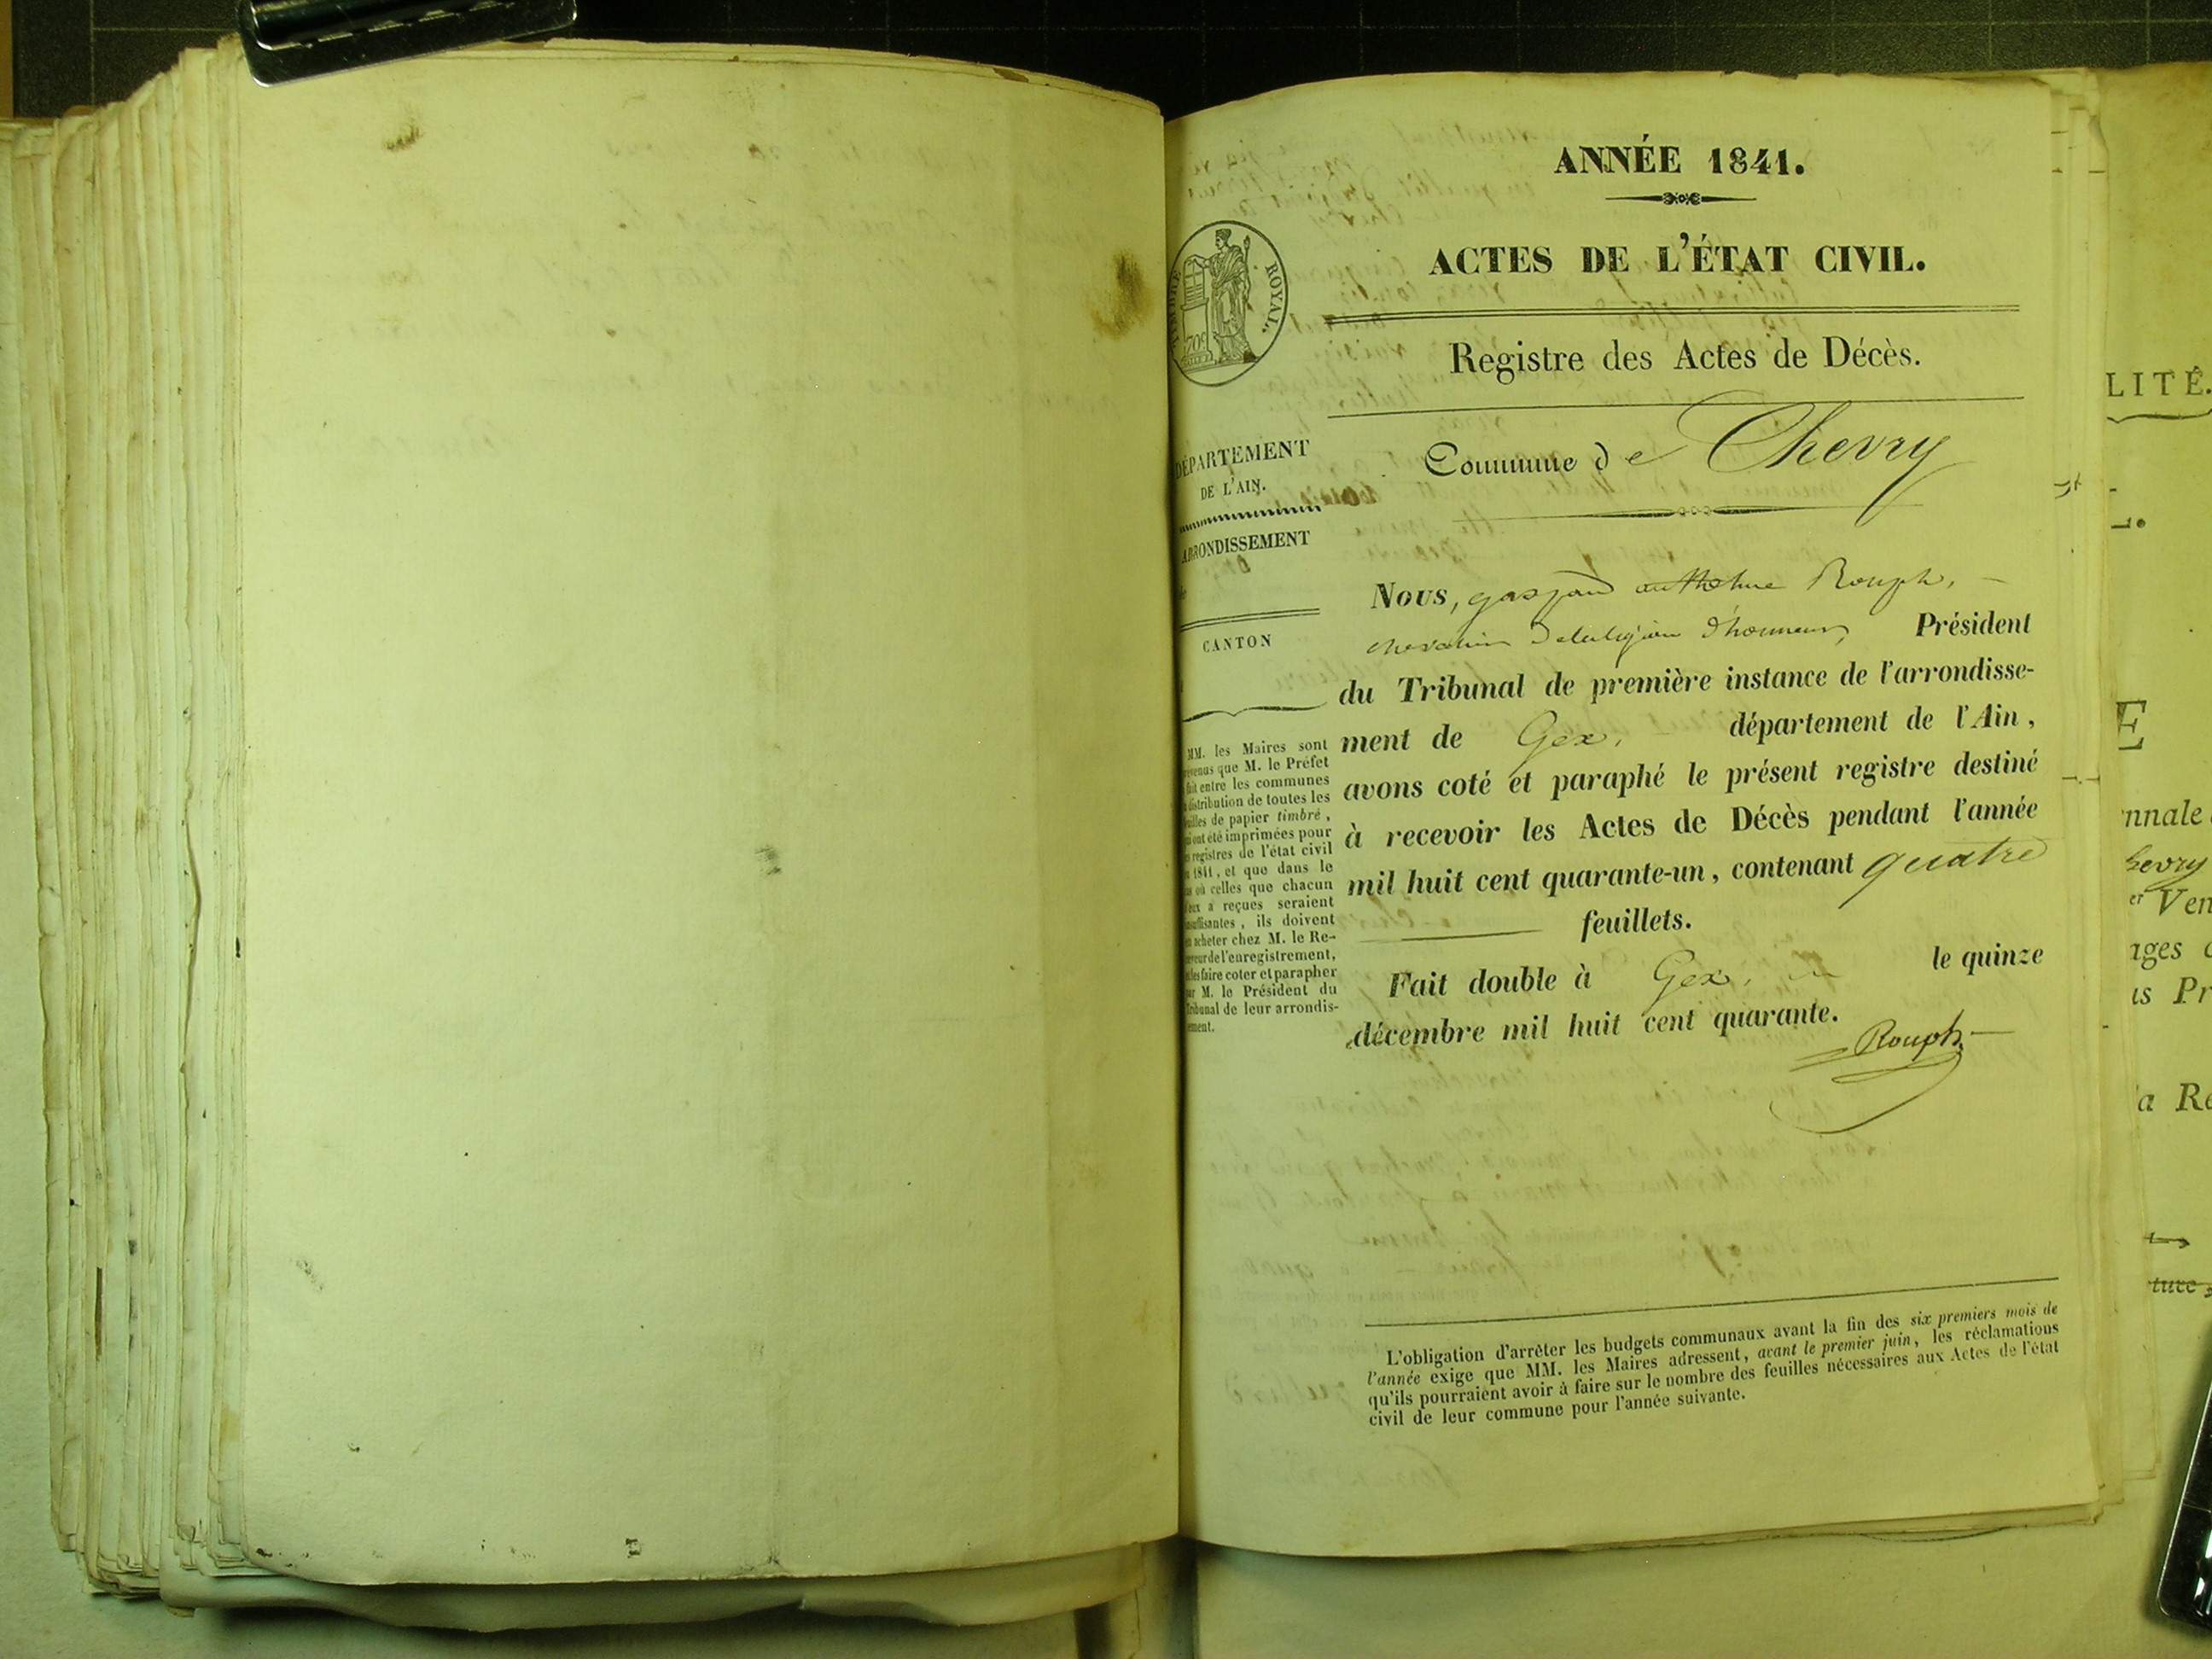 ANNÉE 1841.
ACTES DE L'ÉTAT CIVIL.
TIMBRE ROYAL.
70c
Registre des Actes de Décès.
Commune de Chevry
DÉPARTEMENT
DE L'AIN.
ARRONDISSEMENT
CANTON
MM. les Maires sont
prévenus que M. le Préfet
fait entre les communes
distribution de toutes les
feuilles de papier timbré,
qui ont été imprimées pour
registres de l'état civil
1841, et que dans le
cas où celles que chacun
d'eux a reçues seraient
insuffisantes, ils doivent
en acheter chez M. le Re-
ceveur de l'enregistrement,
et les faire coter et parapher
par M. le Président du
Tribunal de leur arrondis-
sement.
Nous, gaspard anthelme Rouph,
chevalier de la légion d'honneur, Président
du Tribunal de première instance de l'arrondisse-
ment de Gex, département de l'Ain,
avons coté et paraphé le présent registre destiné
à recevoir les Actes de Décès pendant l'année
mil huit cent quarante-un, contenant quatre
feuillets.
Fait double à Gex, le quinze
décembre mil huit cent quarante.
Rouph
L'obligation d'arrêter les budgets communaux avant la fin des six premiers mois de
l'année exige que MM. les Maires adressent, avant le premier juin, les réclamations
qu'ils pourraient avoir à faire sur le nombre des feuilles nécessaires aux Actes de l'état
civil de leur commune pour l'année suivante.
LITÉ.
E
nnale
hevry
er Ven
ages
is Pr
a Ré
ture